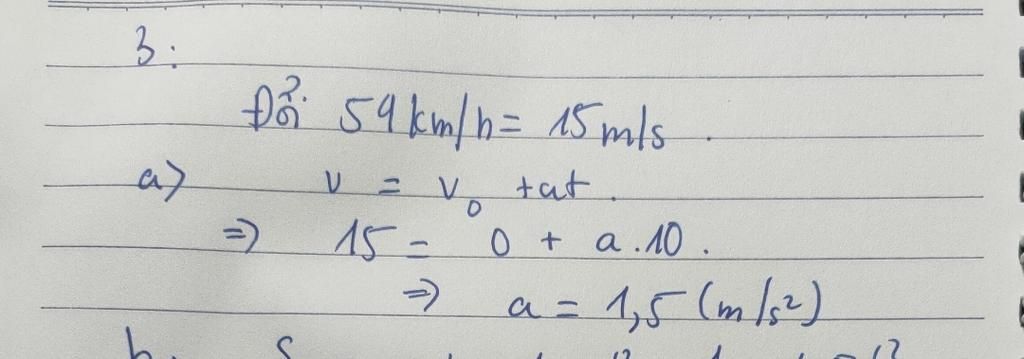 3:
Đổi 54 km/h = 15 m/s.
a) v = v₀ + at.
=> 15 = 0 + a.10.
=> a = 1,5 (m/s²)